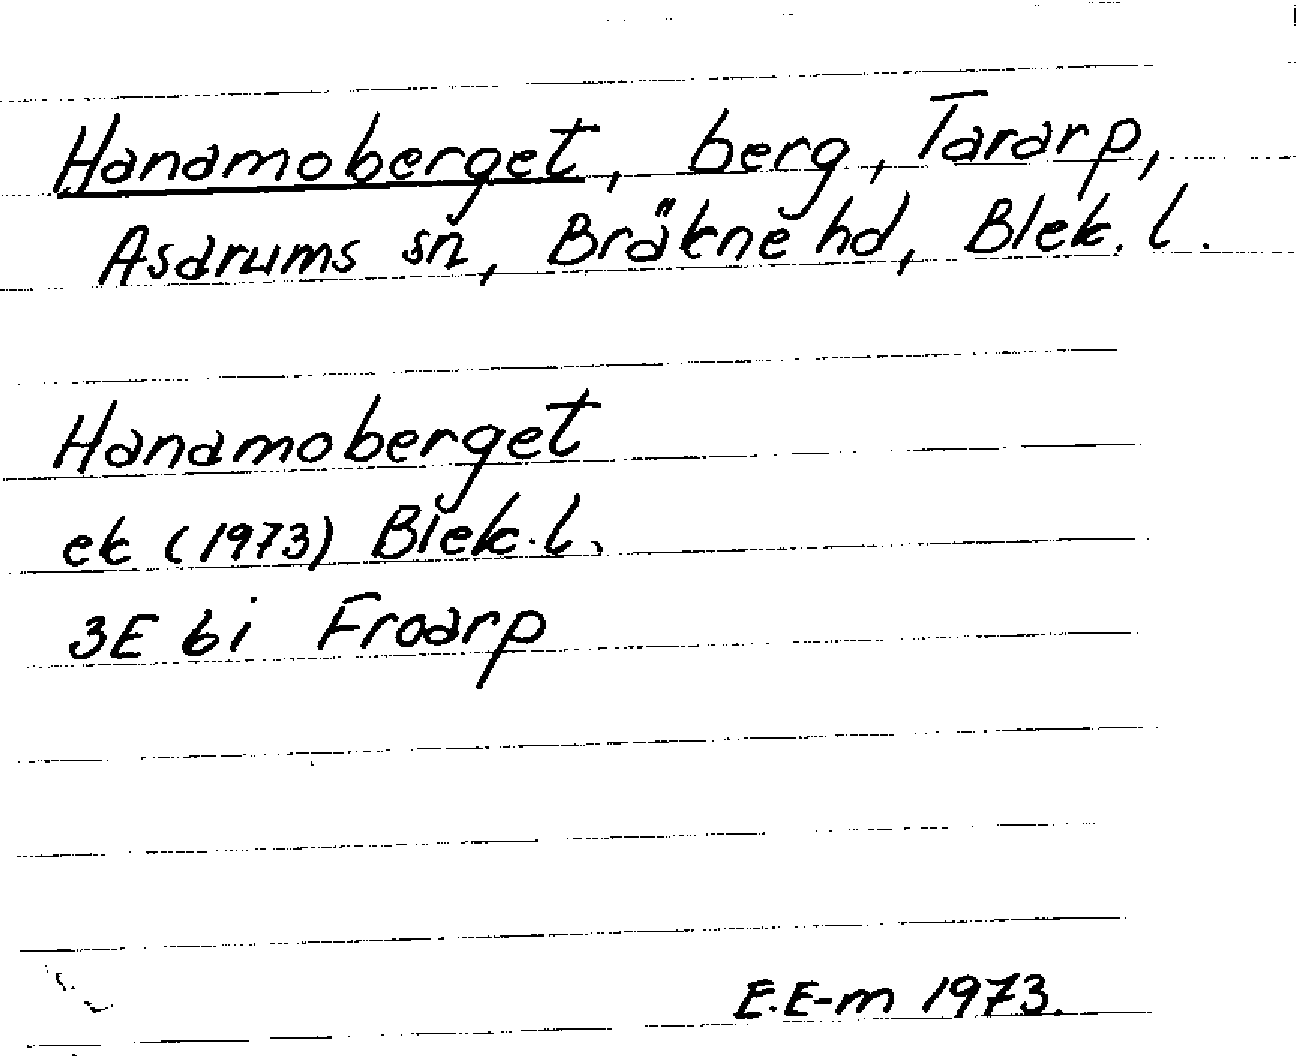 Hanamoberget, berg, Tararp,
Asarums sn, Bräkne hd, Blek. l.
Hanamoberget
ek (1973) Blek. l.
3E bi Froarp
E.E-m 1973.